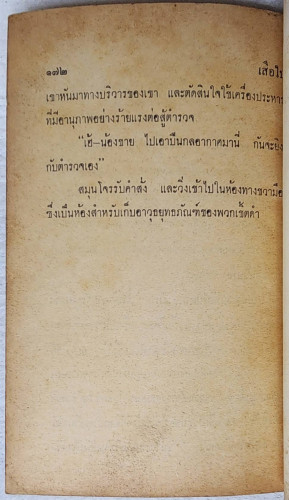 ๑๗๒ เสือใบ
เขาหันมาทางบริวารของเขา และตัดสินใจใช้เครื่องประหาร
ที่มีอานุภาพอย่างร้ายแรงต่อสู้ตำรวจ
“เฮ้–น้องชาย ไปเอาปืนกลอากาศมานี่ กันจะยิง
กับตำรวจเอง”
สมุนโจรรับคำสั่ง และวิ่งเข้าไปในห้องทางขวามือ
ซึ่งเป็นห้องสำหรับเก็บอาวุธยุทธภัณฑ์ของพวกเช็ตดำ